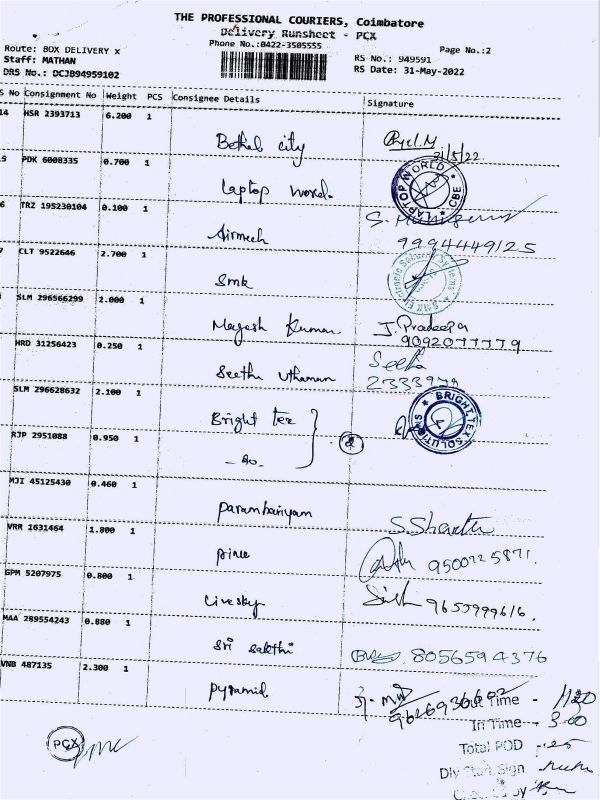 THE PROFESSIONAL COURIERS, Coimbatore
Delivery Runsheet - PCX
Phone No.:0422-3505555
Page No.:2
Route: BOX DELIVERY x
Staff: MATHAN
DRS No.: DCJB94959102
RS No.: 949591
RS Date: 31-May-2022
S No Consignment No Weight PCS Consignee Details Signature
14 HSR 2393713 6.200 1 Bethel city
PDK 6008335 0.700 1 Laptop world.
LAPTOP WORLD ★ CBE ★
TRZ 195230104 0.100 1 Airmech
9994449125
CLT 9522646 2.700 1 Smk
SLM 296566299 2.000 1 Magesh Kumar J. Pradeepa
9092077779
HRD 31256423 0.250 1 Seetha Uthaman Seetha
2333979
SLM 296628632 2.100 1 Bright tex
BRIGHT-TEX SOLUTIONS ★
RJP 2951088 0.950 1 - do - 2
MJI 45125430 0.460 1
VRR 1631464 1.800 1 prince 9500725871.
GPM 5207975 0.800 1 Livesky 9655999616.
MAA 289554243 0.880 1 Sri sakthi 8056594376
VNB 487135 2.300 1 pyramid
9626936602
Out Time - 1120
In Time - 3.00
Total POD - 25
PCX